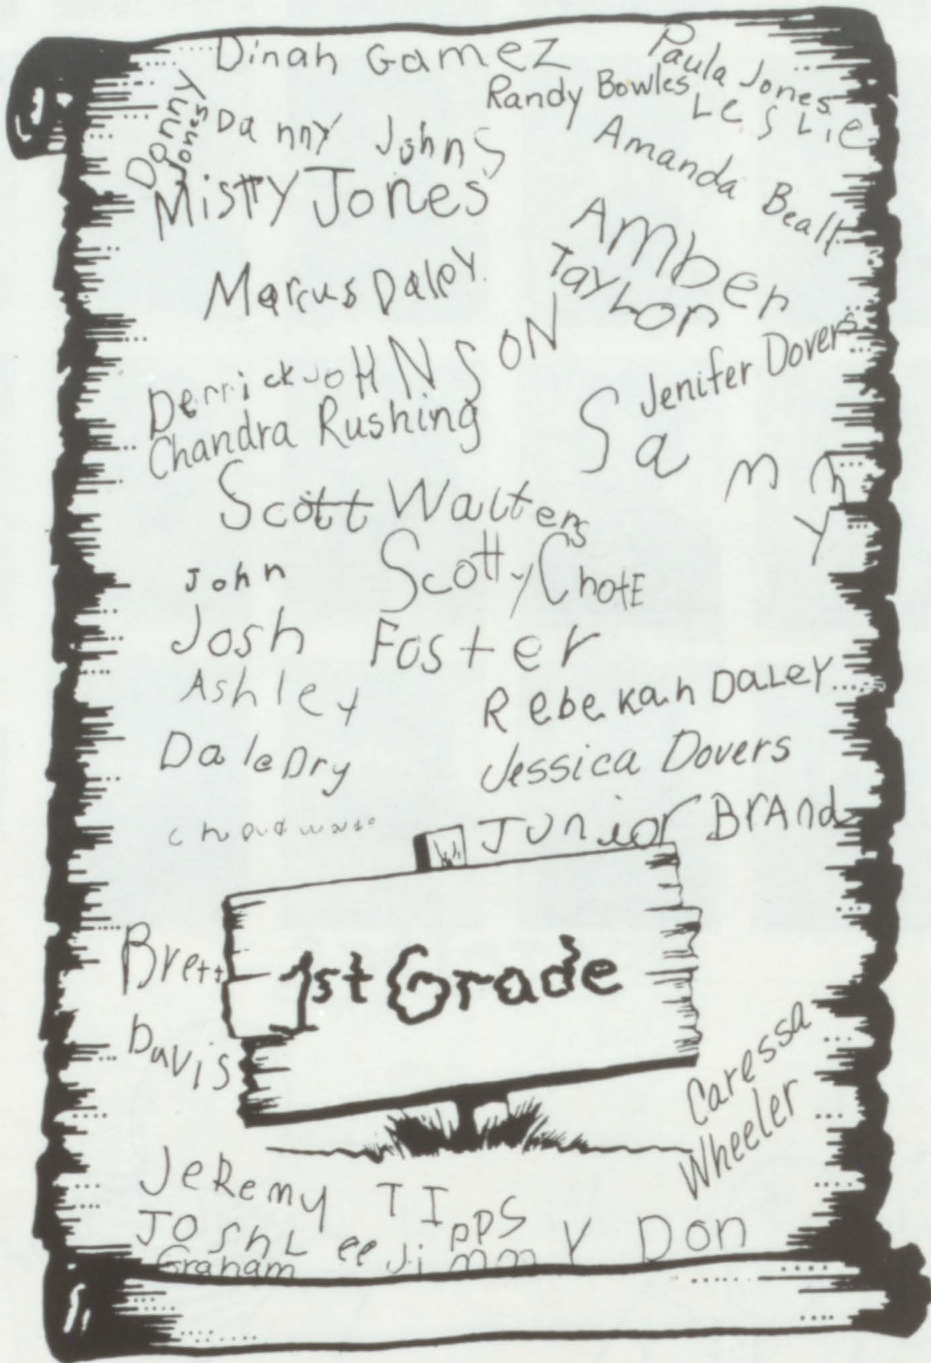 Dinah Gamez
Paula Jones
Randy Bowles
LesLie
Donny Jones
Danny Johns
Amanda Bealt
Misty Jones
Amber
TayLor
Marcus Daley
Derrick JoHNSON
Jenifer Dovers
Chandra Rushing
Sammy
Scott Walters
John
Scotty ChotE
Josh Foster
Ashley
Rebekah DaLEY
Dale Dry
Jessica Dovers
Junior BrAnd
Brett
1st Grade
Davis
Caressa
Wheeler
JeRemy TIpps
JoshLee Jimmy Don
Graham